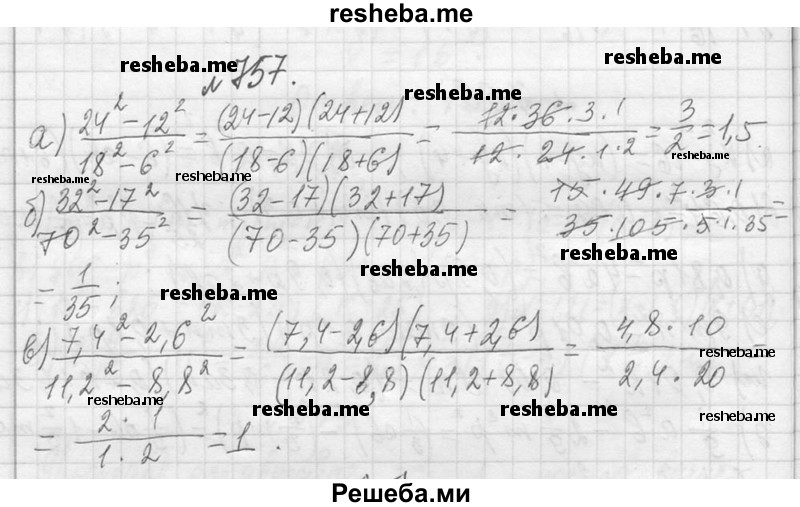 resheba.me
resheba.me resheba.me
№ 757.
а) (24² − 12²)/(18² − 6²) = ((24−12)(24+12))/((18−6)(18+6)) = (12·36·3·1)/(12·24·1·2) = 3/2 = 1,5.
resheba.me resheba.me resheba.me
б) (32² − 17²)/(70² − 35²) = ((32−17)(32+17))/((70−35)(70+35)) = (15·49·7·3·1)/(35·105·5·1·35) =
resheba.me resheba.me resheba.me
= 1/35;
resheba.me resheba.me
в) (7,4² − 2,6²)/(11,2² − 8,8²) = ((7,4−2,6)(7,4+2,6))/((11,2−8,8)(11,2+8,8)) = (4,8·10)/(2,4·20) =
resheba.me resheba.me
= (2·1)/(1·2) = 1.
resheba.me resheba.me resheba.me
Решеба.ми